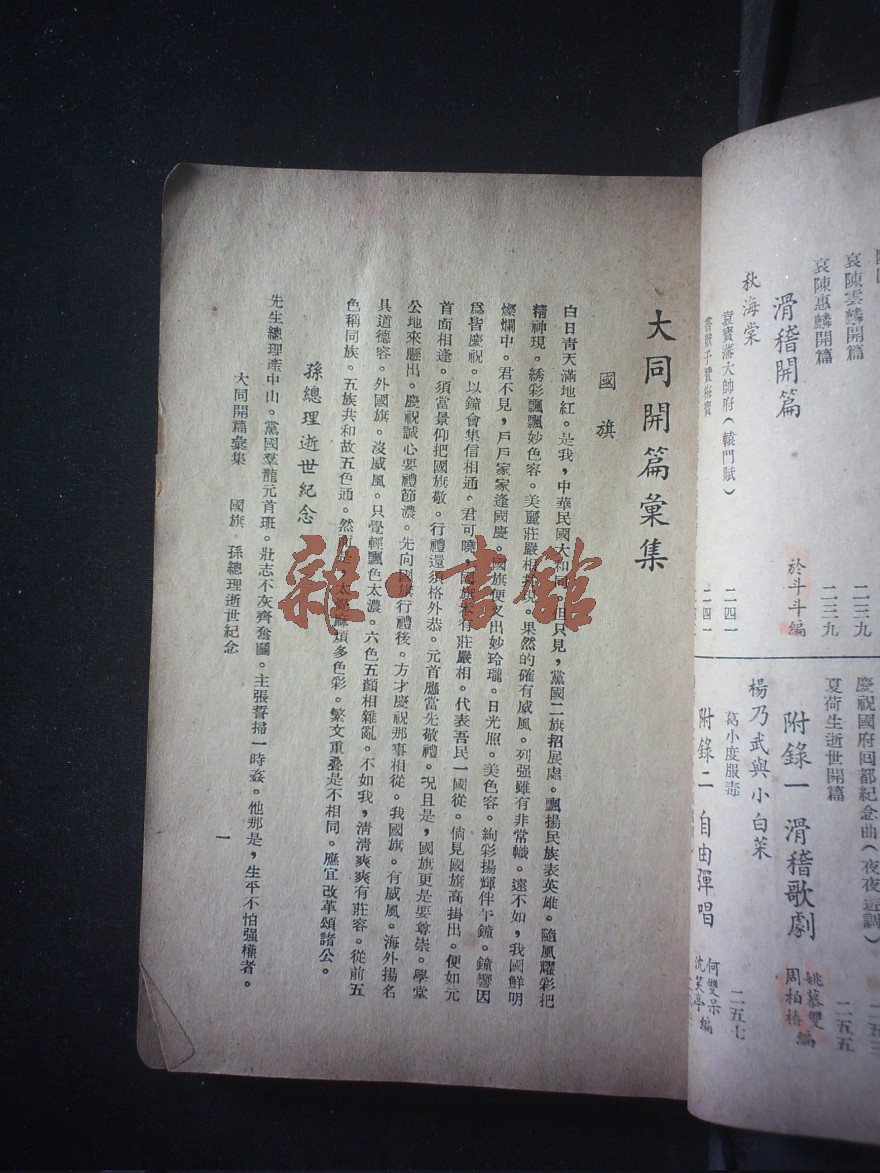 大同開篇彙集
國旗
白日靑天滿地紅。是我，中華民國大和同。但只見，黨國二旗招展處。飄揚民族表英雄。隨風耀彩把
精神現。綉彩飄飄妙色容。美麗莊嚴相共現。果然的確有威風。列强雖有非常幟。遠不如，我國鮮明
燦爛中。君不見，戶戶家家逢國慶。國旗便又出妙玲瓏。日光照。美色容。絢彩揚輝伴午鐘。鐘響因
爲皆慶祝。以鐘會集信相通。君可曉，國旗本有莊嚴相。代表吾民一國從。倘見國旗高掛出。便如元
首面相逢。須當景仰把國旗敬。行禮還須格外恭。元首應當先敬禮。况且是，國旗更是要尊崇。學堂
公地來懸出。慶祝誠心要禮節濃。先向國旗行禮後。方才慶祝那事相從。我國旗。有威風。海外揚名
具道德容。外國旗。沒威風。只覺輕飄色太濃。六色五顏相雜亂。不如我，淸淸爽爽有莊容。從前五
色稱同族。五族共和故五色通。然而是，太覺麻煩多色彩。繁文重叠是不相同。應宜改革頌諸公。
孫總理逝世紀念
先生總理產中山。黨國羣龍元首班。壯志不灰齊奮鬭。主張誓掃一時姦。他那是，生平不怕强權者。
大同開篇彙集 國旗 孫總理逝世紀念
一
雜·書館
哀陳雲麟開篇 二三九
哀陳惠麟開篇 二三九
滑稽開篇 於斗斗編
秋海棠
袁寶藩大帥府（轅門賦） 二四一
二四一
慶祝國府回都紀念曲（夜夜近調）
夏荷生逝世開篇 二五五
附錄一 滑稽歌劇 姚慕雙 周柏椿 編
楊乃武與小白菜
葛小度服毒 二五七
附錄二 自由彈唱 何雙呆 沈笑亭 編